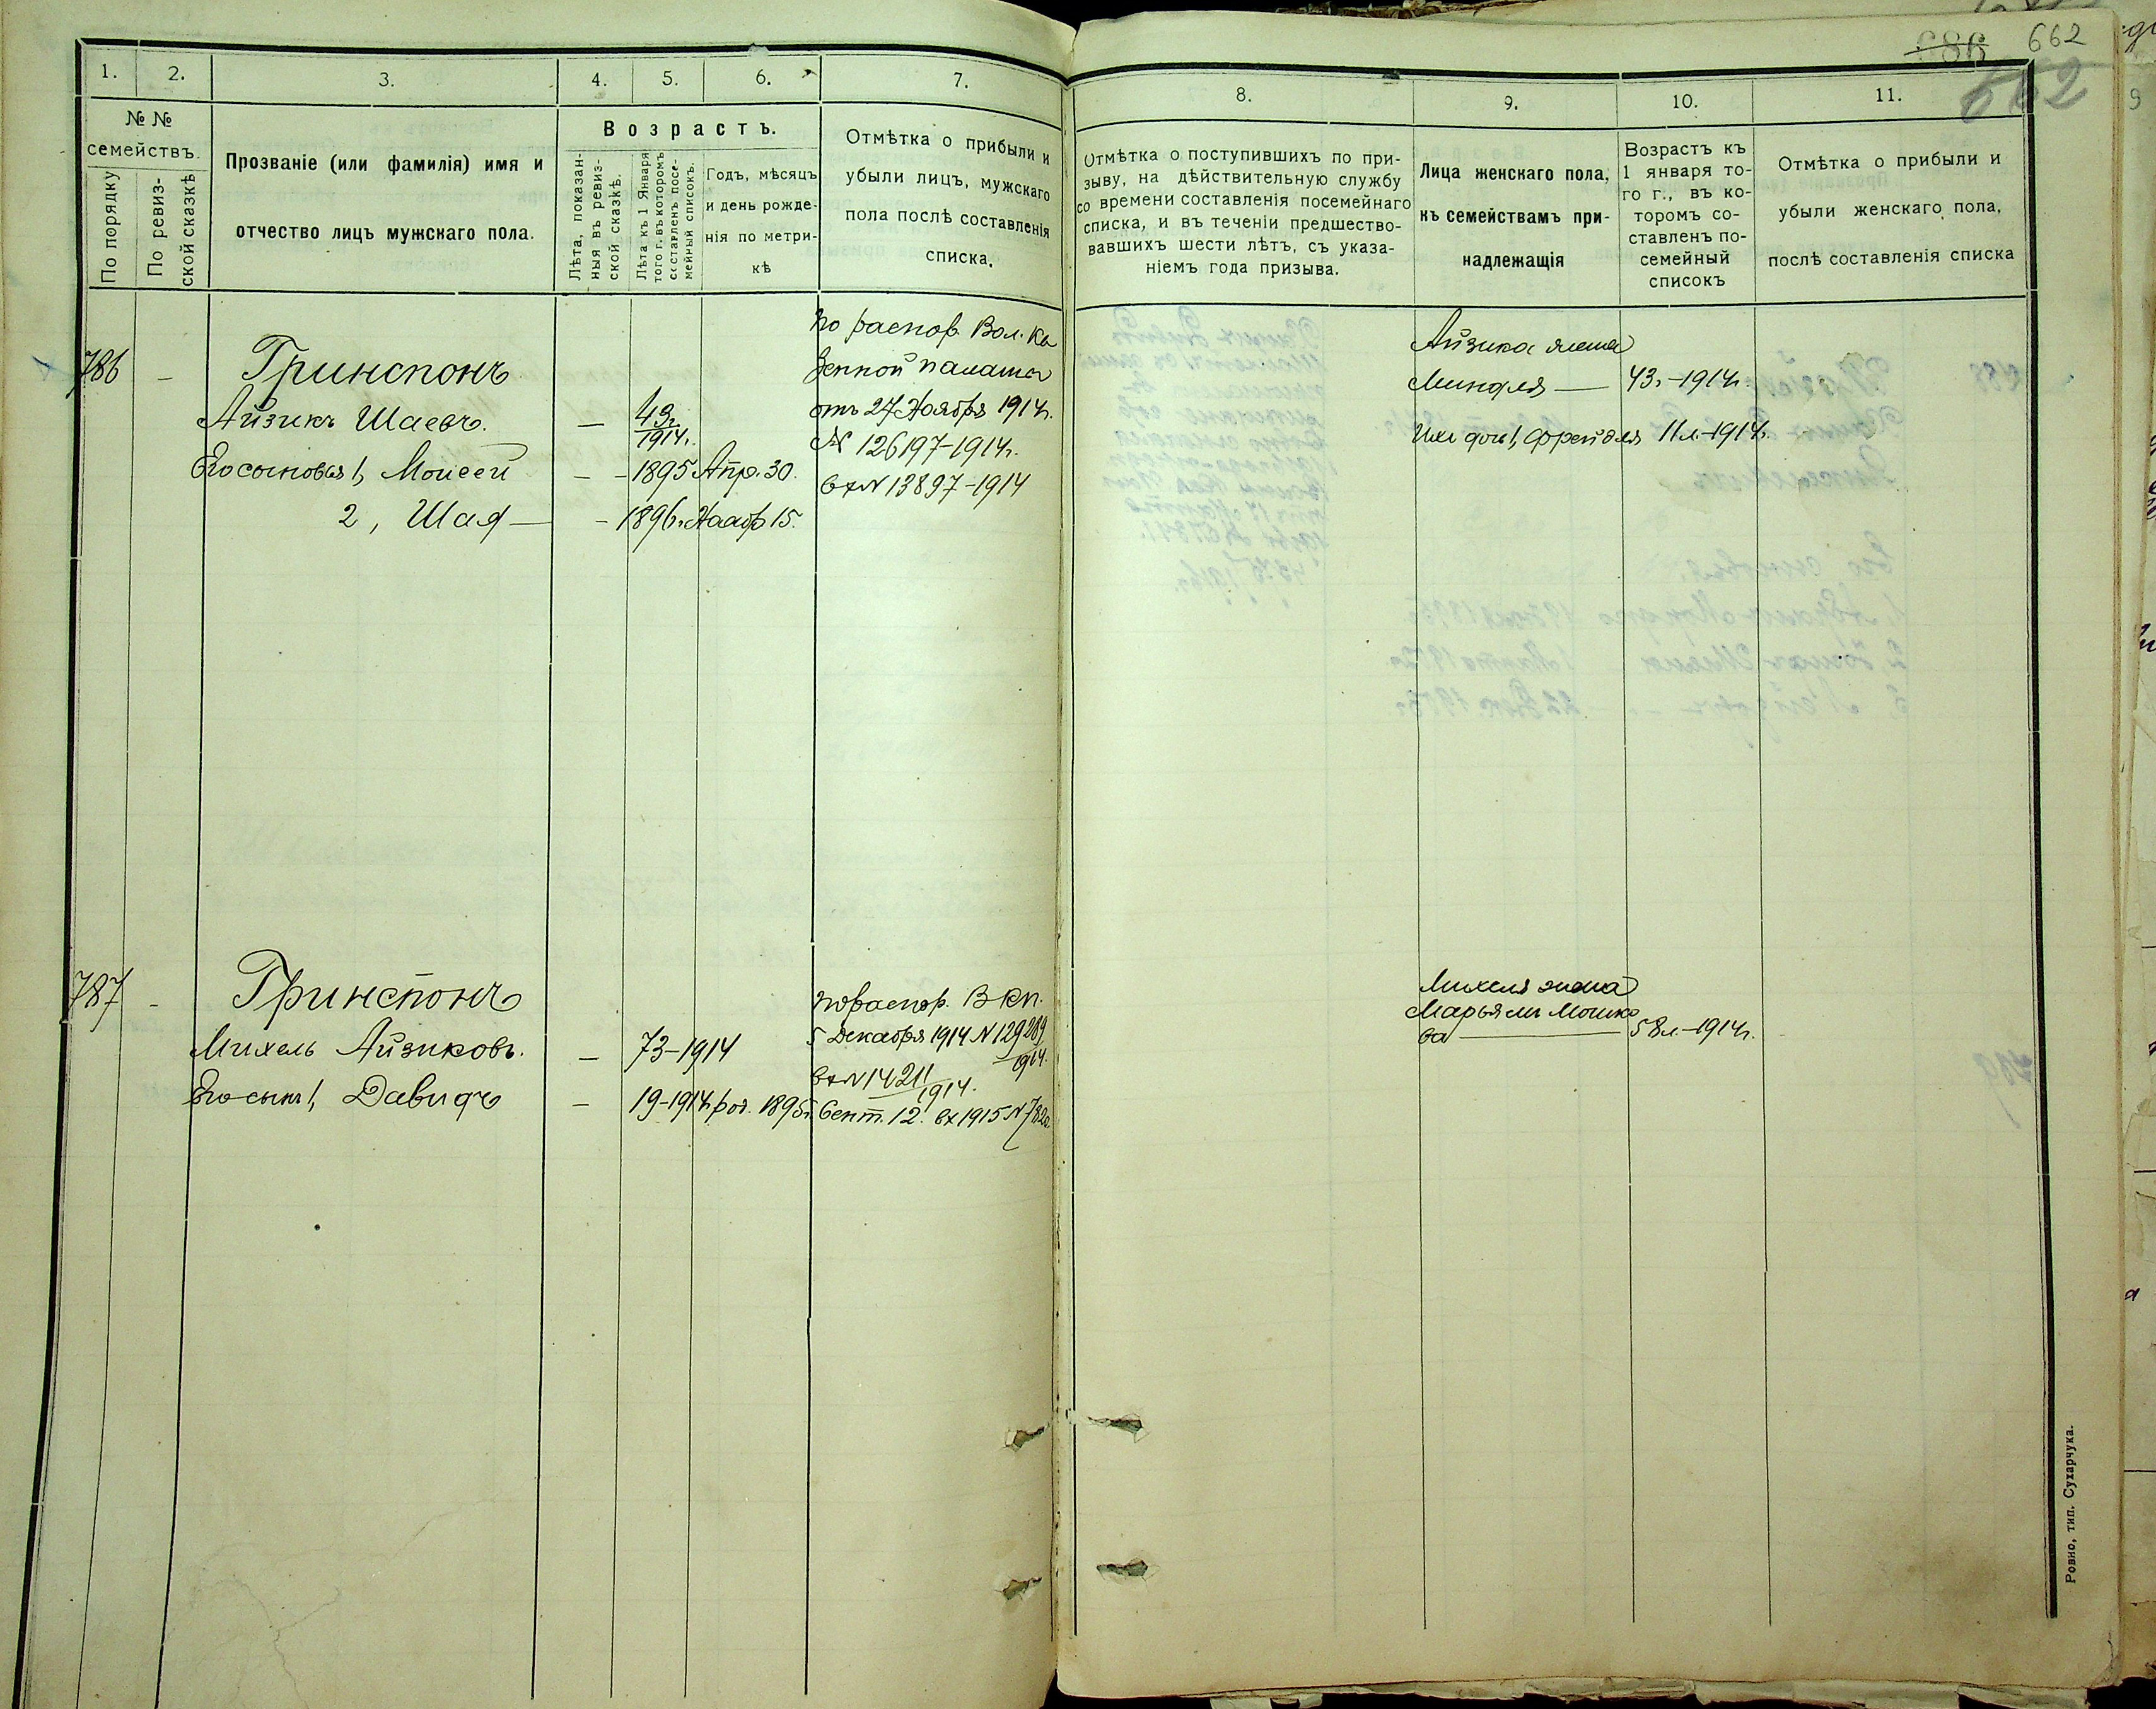 686 662
662
1. 2. 3. 4. 5. 6. 7.
№ №
семействъ.
По порядку
По ревиз-
ской сказкѣ
Прозваніе (или фамилія) имя и
отчество лицъ мужскаго пола.
Возрастъ.
Лѣта, показан-
ныя въ ревиз-
ской сказкѣ.
Лѣта къ 1 Января
того г. въ которомъ
составленъ посе-
мейный списокъ.
Годъ, мѣсяцъ
и день рожде-
нія по метри-
кѣ
Отмѣтка о прибыли и
убыли лицъ, мужскаго
пола послѣ составленія
списка.
786 — Гринспонъ
Айзикъ Шаевъ. — 43г
1914г.
Его сыновья 1, Моисей — - 1895 Апр. 30.
2, Шая — - 1896г. Ноябр 15.
по распор. Вол. Ка
зенной палаты
отъ 27 Ноября 1914г.
№ 126197-1914г.
вх № 13897-1914
787 - Гринспонъ
Михель Айзиковъ. — 73-1914
Его сынъ 1, Давидъ — 19-1914г род. 1895г. Сент. 12. вх 1915 №
по распор. В К П.
5 Декабря 1914 № 129289
1914.
вх № 14211
1914.
8. 9. 10. 11.
Отмѣтка о поступившихъ по при-
зыву, на дѣйствительную службу
со времени составленія посемейнаго
списка, и въ теченіи предшество-
вавшихъ шести лѣтъ, съ указа-
ніемъ года призыва.
Лица женскаго пола,
къ семействамъ при-
надлежащія
Возрастъ къ
1 января то-
го г., въ ко-
торомъ со-
ставленъ по-
семейный
списокъ
Отмѣтка о прибыли и
убыли женскаго пола,
послѣ составленія списка
Айзика жена
Миндля — 43г.-1914г.
Ихъ дочь 1, Фрейдля 11л.-1914г.
Михеля жена
Марьямъ Мошко
ва — 58л.-1914г.
Ровно, тип. Сухарчука.